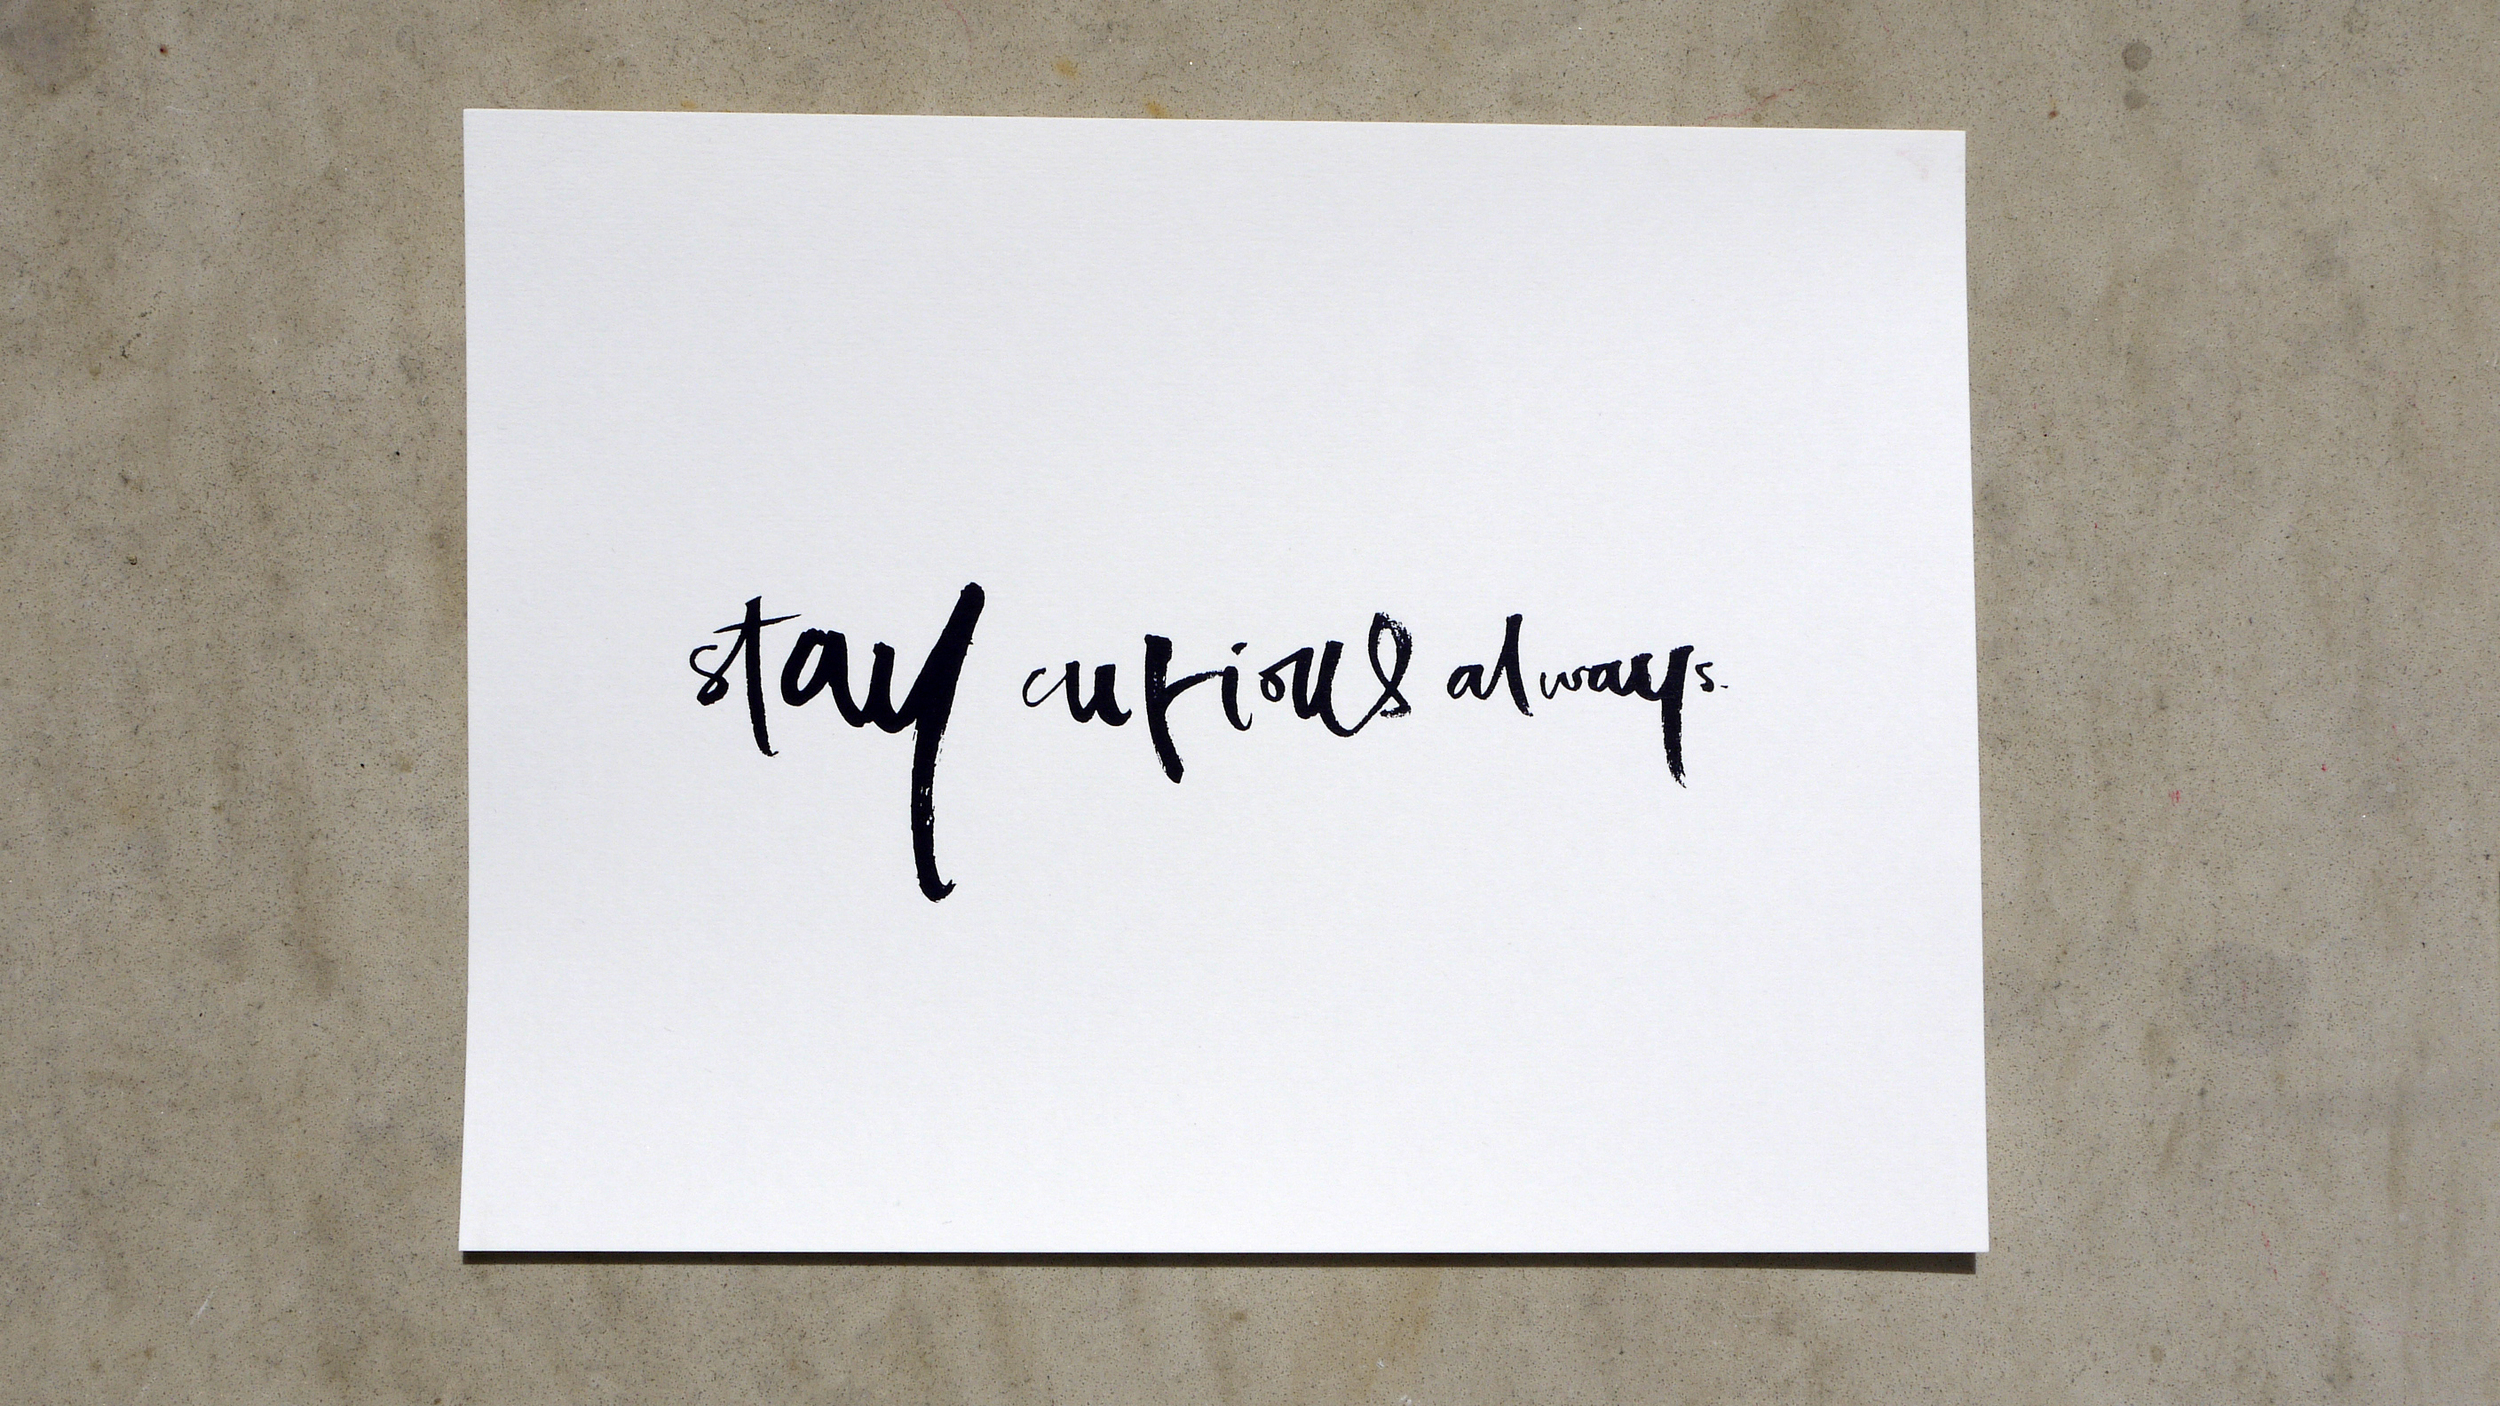 stay curious always.